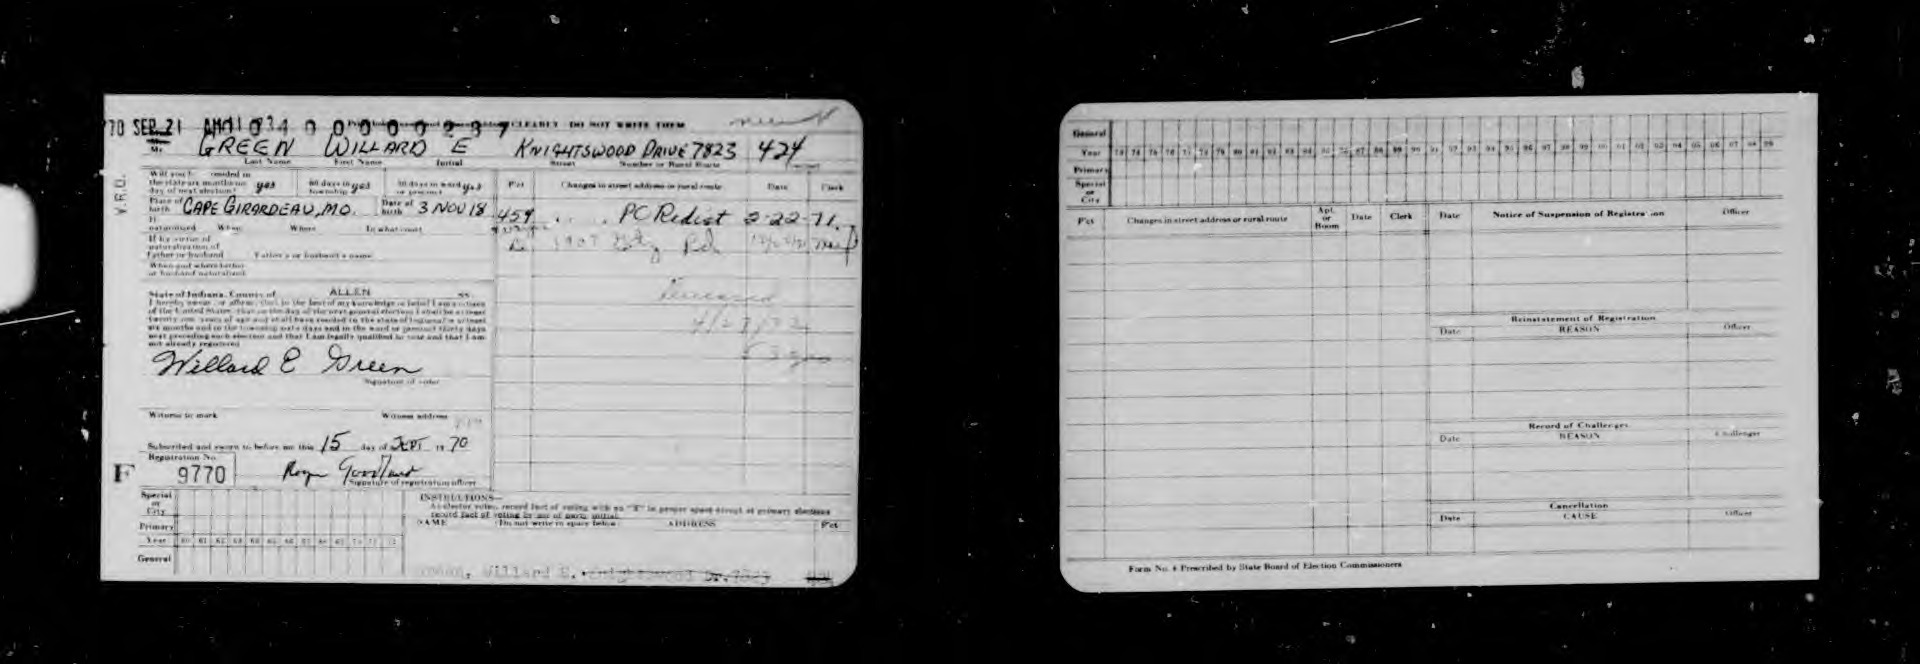 70 SEP 21 AM 0 1 0 4 0 0 0 0 0 2 3 7 CLEARLY DO NOT WRITE THEM
Mr. GREEN WILLARD E KNIGHTSWOOD DRIVE 7823 424
Last Name First Name Initial Street Number or Rural Route
V.R.O.
Will you have resided in
the state six months on yes 60 days in yes 30 days in ward yes
day of next election? township or precinct
Pct Changes in street address or rural route Date Clerk
Place of birth CAPE GIRARDEAU, MO. Date of birth 3 NOV 18
459 PC Redist 2-22-71
If naturalized When Where In what court
If by virtue of
naturalization of
father or husband Father's or husband's name
When and where father
or husband naturalized
State of Indiana, County of ALLEN ss
I hereby swear or affirm, that to the best of my knowledge or belief I am a citizen
of the United States, that on the day of the next general election I shall be at least
twenty-one years of age and shall have resided in the state of Indiana at least
six months and in the township sixty days and in the ward or precinct thirty days
next preceding such election and that I am legally qualified to vote and that I am
not already registered
Deceased
Willard E Green
Signature of voter
Witness to mark Witness address
Subscribed and sworn to before me this 15 day of SEPT 19 70
Registration No.
F 9770
Signature of registration officer
Special
or
City
Primary
Year 60 61 62 63 64 65 66 67 68 69 70 71 72
General
INSTRUCTIONS—
As elector votes, record fact of voting with an "X" in proper space except at primary elections
record fact of voting by use of party initial
NAME (Do not write in space below ADDRESS Pct
Green, Willard E. Knightswood Dr. 7823 424
General
Year
Primary
Special
or
City
Pct Changes in street address or rural route Apt. or Room Date Clerk
Date Notice of Suspension of Registration Officer
Reinstatement of Registration
Date REASON Officer
Record of Challenges
Date REASON Challenger
Cancellation
Date CAUSE Officer
Form No. 4 Prescribed by State Board of Election Commissioners